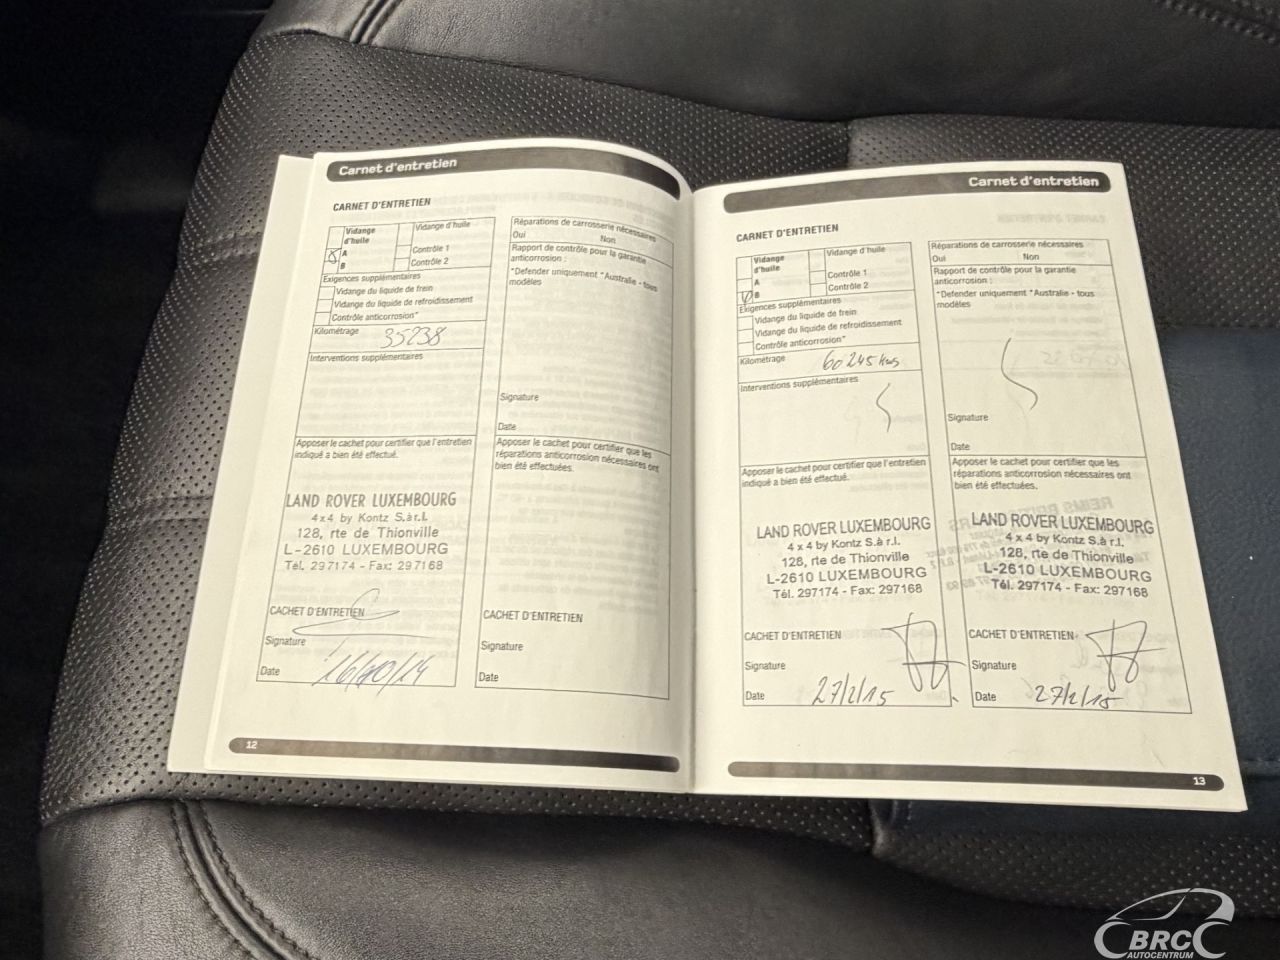 Carnet d'entretien
CARNET D'ENTRETIEN
Vidange d'huile
A
B
Vidange d'huile
Contrôle 1
Contrôle 2
Exigences supplémentaires
Vidange du liquide de frein
Vidange du liquide de refroidissement
Contrôle anticorrosion*
Kilométrage 35238
Interventions supplémentaires
Apposer le cachet pour certifier que l'entretien
indiqué a bien été effectué.
LAND ROVER LUXEMBOURG
4 x 4 by Kontz S.à r.l.
128, rte de Thionville
L-2610 LUXEMBOURG
Tél. 297174 - Fax: 297168
CACHET D'ENTRETIEN
Signature
Date 16/10/14
Réparations de carrosserie nécessaires
Oui Non
Rapport de contrôle pour la garantie
anticorrosion :
*Defender uniquement *Australie - tous
modèles
Signature
Date
Apposer le cachet pour certifier que les
réparations anticorrosion nécessaires ont
bien été effectuées.
CACHET D'ENTRETIEN
Signature
Date
12
Carnet d'entretien
CARNET D'ENTRETIEN
Vidange d'huile
A
B
Vidange d'huile
Contrôle 1
Contrôle 2
Exigences supplémentaires
Vidange du liquide de frein
Vidange du liquide de refroidissement
Contrôle anticorrosion*
Kilométrage 60245 Kms
Interventions supplémentaires
Apposer le cachet pour certifier que l'entretien
indiqué a bien été effectué.
LAND ROVER LUXEMBOURG
4 x 4 by Kontz S.à r.l.
128, rte de Thionville
L-2610 LUXEMBOURG
Tél. 297174 - Fax: 297168
CACHET D'ENTRETIEN
Signature
Date 27/2/15
Réparations de carrosserie nécessaires
Oui Non
Rapport de contrôle pour la garantie
anticorrosion :
*Defender uniquement *Australie - tous
modèles
Signature
Date
Apposer le cachet pour certifier que les
réparations anticorrosion nécessaires ont
bien été effectuées.
LAND ROVER LUXEMBOURG
4 x 4 by Kontz S.à r.l.
128, rte de Thionville
L-2610 LUXEMBOURG
Tél. 297174 - Fax: 297168
CACHET D'ENTRETIEN
Signature
Date 27/2/15
13
BRC
AUTOCENTRUM